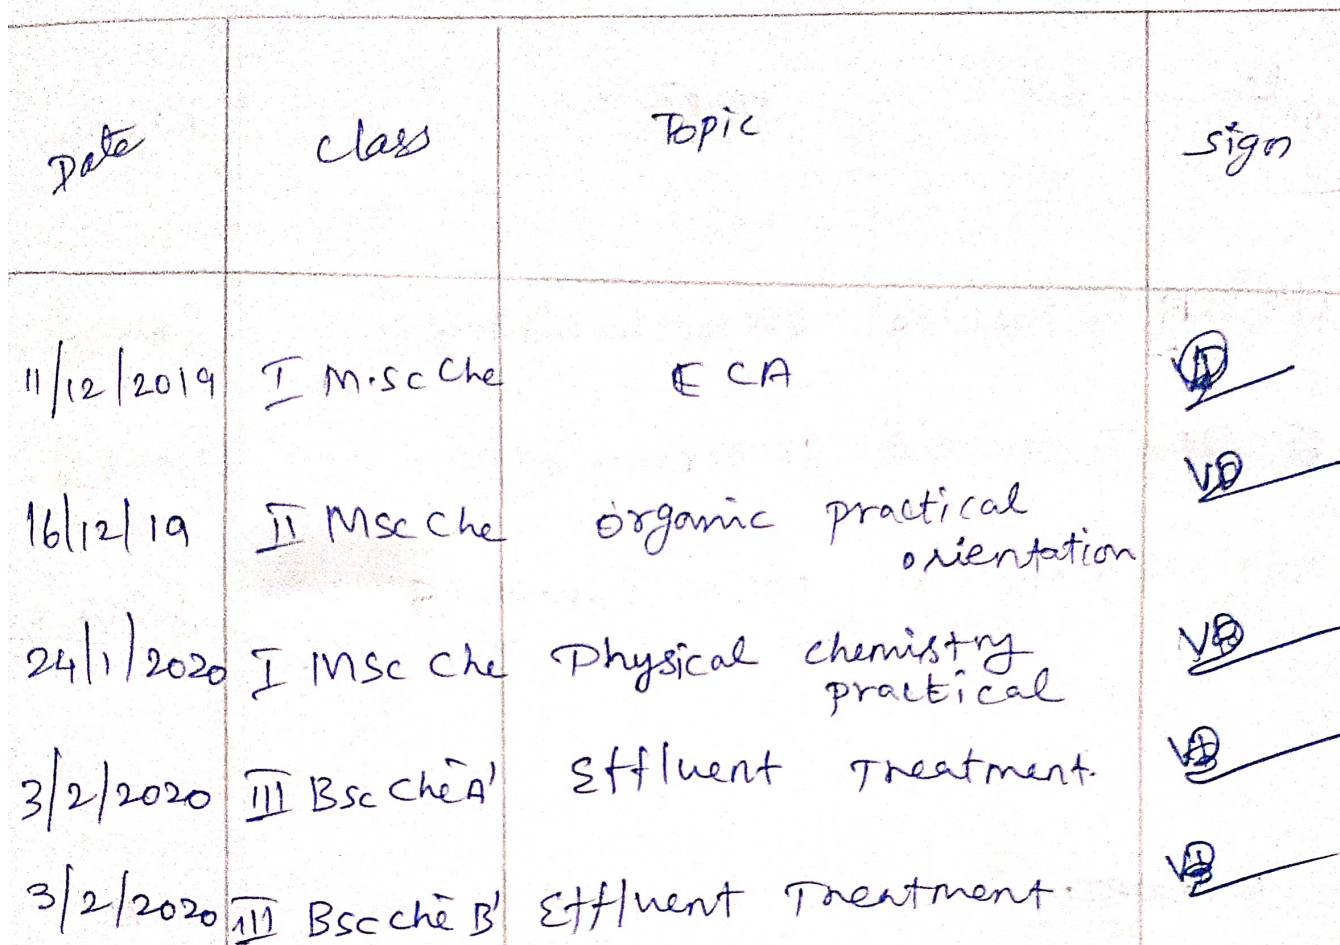 Date class Topic sign
11/12/2019 I M.Sc Che ECA
16/12/19 II MSc Che organic practical
orientation
24/1/2020 I MSc Che Physical chemistry
practical
3/2/2020 III BSc Che 'A' Effluent Treatment.
3/2/2020 III BSc Che 'B' Effluent Treatment.